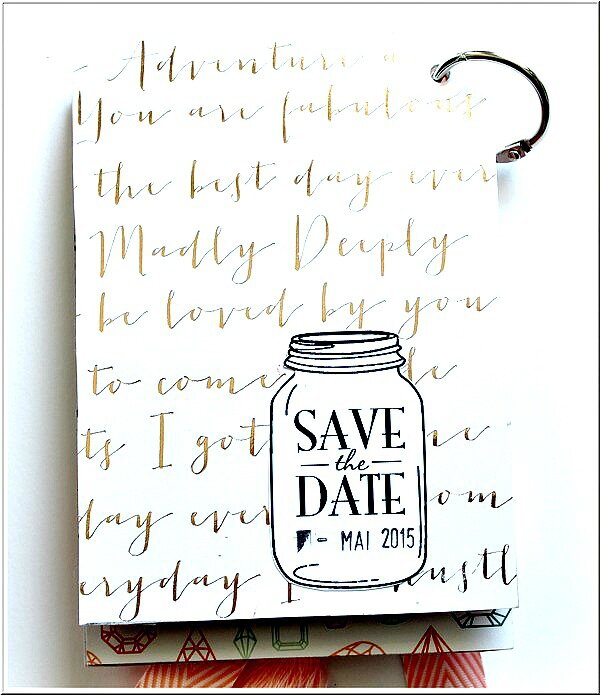 Adventure a
You are fabulous
the best day ever
Madly Deeply
be loved by you
to come
ts I got
day ever
om
eryday I hustl
SAVE
the
DATE
- MAI 2015